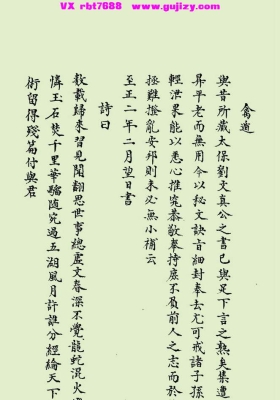 VX rbt7688 www.gujizy.com
禽遁
與昔所藏太保劉文真公之書已與足下言之熟矣集遭
昇平老而無用今以秘文訣旨細封奉去尤可戒諸子孫
輕泄果能以悉心推究恭敬奉持庶不負前人之志而於
拯難撥亂安邦則未必無小補云
至正二年二月望日書
詩曰
數載歸來習見聞翻思世事總虛文春深不覺龍蛇混火
憐玉石焚千里華驄隨宛過五湖風月許誰分經綸天下
術留得殘篇付與君